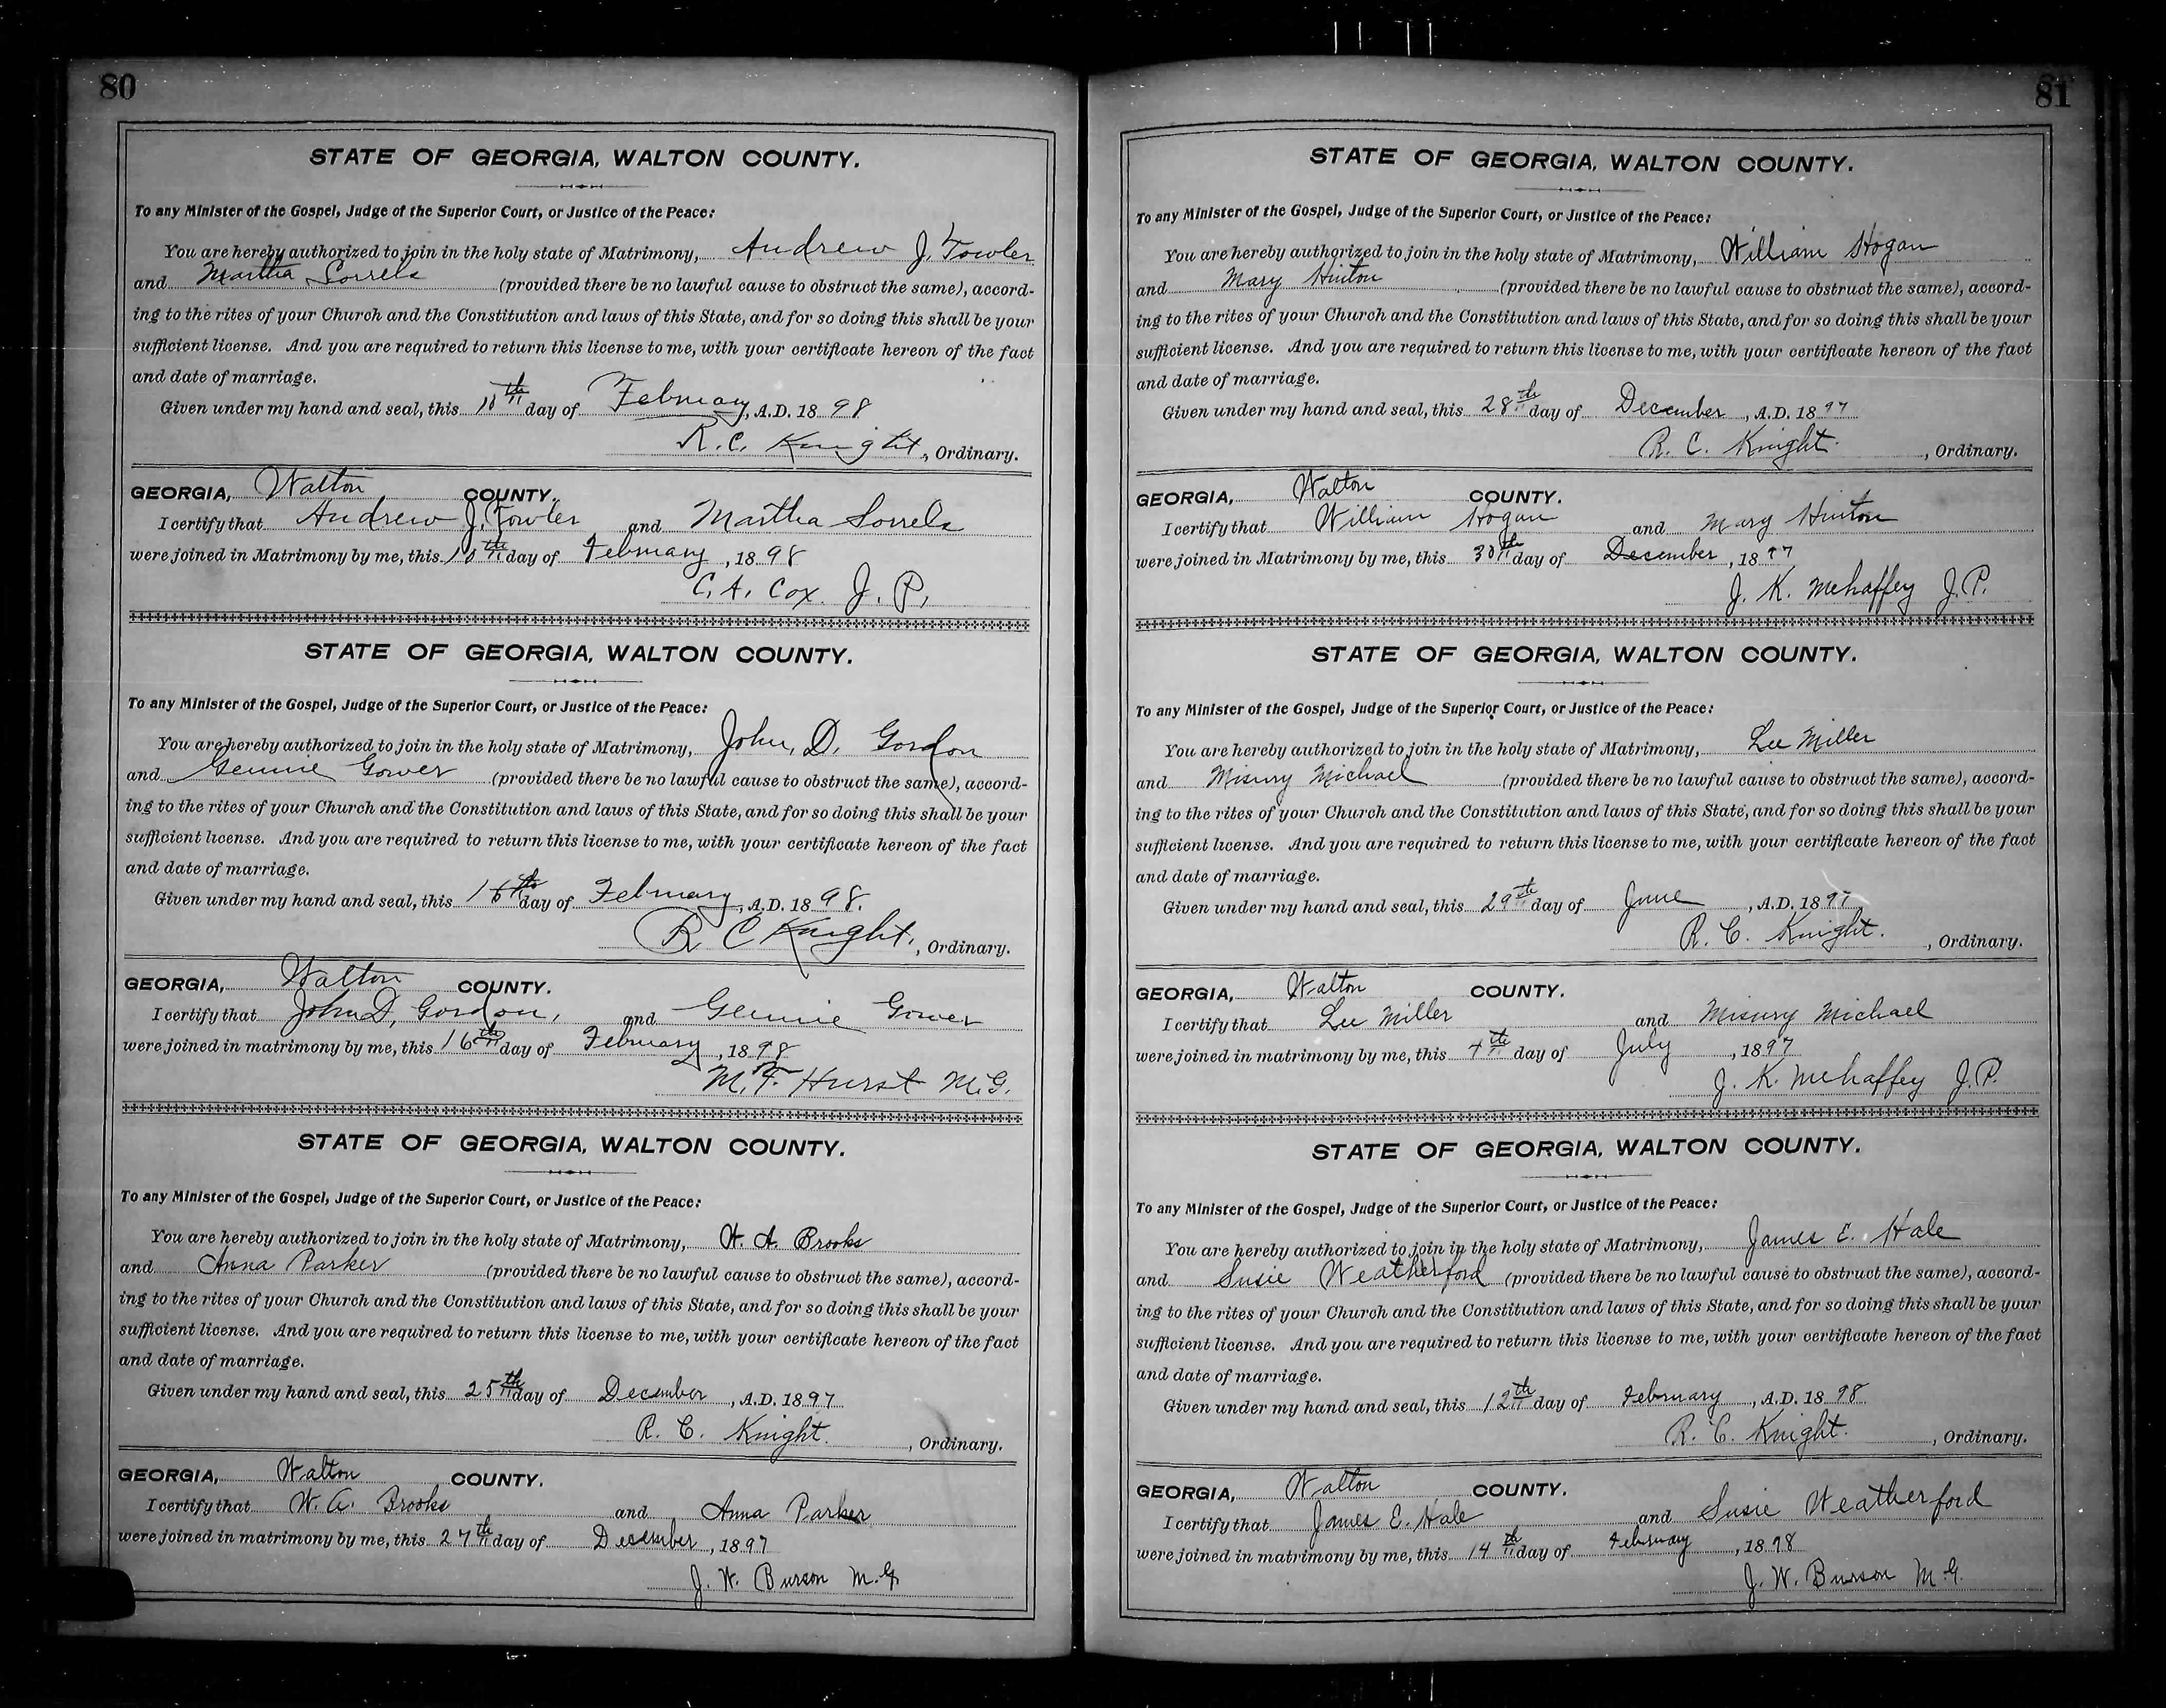 80
STATE OF GEORGIA, WALTON COUNTY.
To any Minister of the Gospel, Judge of the Superior Court, or Justice of the Peace:
You are hereby authorized to join in the holy state of Matrimony, Andrew J. Towler
and Martha Sorrels (provided there be no lawful cause to obstruct the same), accord-
ing to the rites of your Church and the Constitution and laws of this State, and for so doing this shall be your
sufficient license. And you are required to return this license to me, with your certificate hereon of the fact
and date of marriage.
Given under my hand and seal, this 10th day of February, A.D. 1898
R. C. Knight, Ordinary.
GEORGIA, Walton COUNTY.
I certify that Andrew J. Towler and Martha Sorrels
were joined in Matrimony by me, this 10th day of February, 1898
C. A. Cox. J. P.
STATE OF GEORGIA, WALTON COUNTY.
To any Minister of the Gospel, Judge of the Superior Court, or Justice of the Peace:
You are hereby authorized to join in the holy state of Matrimony, John, D. Gordon
and Gennie Gower (provided there be no lawful cause to obstruct the same), accord-
ing to the rites of your Church and the Constitution and laws of this State, and for so doing this shall be your
sufficient license. And you are required to return this license to me, with your certificate hereon of the fact
and date of marriage.
Given under my hand and seal, this 16th day of February, A.D. 1898.
R C Knight, Ordinary.
GEORGIA, Walton COUNTY.
I certify that John D, Gordon, and Gennie Gower
were joined in matrimony by me, this 16th day of February, 1898
M. F. Hurst M.G.
STATE OF GEORGIA, WALTON COUNTY.
To any Minister of the Gospel, Judge of the Superior Court, or Justice of the Peace:
You are hereby authorized to join in the holy state of Matrimony, W. A. Brooks
and Anna Parker (provided there be no lawful cause to obstruct the same), accord-
ing to the rites of your Church and the Constitution and laws of this State, and for so doing this shall be your
sufficient license. And you are required to return this license to me, with your certificate hereon of the fact
and date of marriage.
Given under my hand and seal, this 25th day of December, A.D. 1897
R. C. Knight. , Ordinary.
GEORGIA, Walton COUNTY.
I certify that W. A. Brooks and Anna Parker
were joined in matrimony by me, this 27th day of December, 1897
J. W. Burson M.G.
81
STATE OF GEORGIA, WALTON COUNTY.
To any Minister of the Gospel, Judge of the Superior Court, or Justice of the Peace:
You are hereby authorized to join in the holy state of Matrimony, William Hogan
and Mary Hinton (provided there be no lawful cause to obstruct the same), accord-
ing to the rites of your Church and the Constitution and laws of this State, and for so doing this shall be your
sufficient license. And you are required to return this license to me, with your certificate hereon of the fact
and date of marriage.
Given under my hand and seal, this 28th day of December, A.D. 1897
R. C. Knight. , Ordinary.
GEORGIA, Walton COUNTY.
I certify that William Hogan and Mary Hinton
were joined in Matrimony by me, this 30th day of December, 1897
J. K. Mehaffey J.P.
STATE OF GEORGIA, WALTON COUNTY.
To any Minister of the Gospel, Judge of the Superior Court, or Justice of the Peace:
You are hereby authorized to join in the holy state of Matrimony, Lee Miller
and Misury Michael (provided there be no lawful cause to obstruct the same), accord-
ing to the rites of your Church and the Constitution and laws of this State, and for so doing this shall be your
sufficient license. And you are required to return this license to me, with your certificate hereon of the fact
and date of marriage.
Given under my hand and seal, this 29th day of June, A.D. 1897
R. C. Knight. , Ordinary.
GEORGIA, Walton COUNTY.
I certify that Lee Miller and Misury Michael
were joined in matrimony by me, this 4th day of July, 1897
J. K. Mehaffey J.P.
STATE OF GEORGIA, WALTON COUNTY.
To any Minister of the Gospel, Judge of the Superior Court, or Justice of the Peace:
You are hereby authorized to join in the holy state of Matrimony, James E. Hale
and Susie Weatherford (provided there be no lawful cause to obstruct the same), accord-
ing to the rites of your Church and the Constitution and laws of this State, and for so doing this shall be your
sufficient license. And you are required to return this license to me, with your certificate hereon of the fact
and date of marriage.
Given under my hand and seal, this 12th day of February, A.D. 1898
R. C. Knight. , Ordinary.
GEORGIA, Walton COUNTY.
I certify that James E. Hale and Susie Weatherford
were joined in matrimony by me, this 14th day of February, 1898
J. W. Burson M.G.